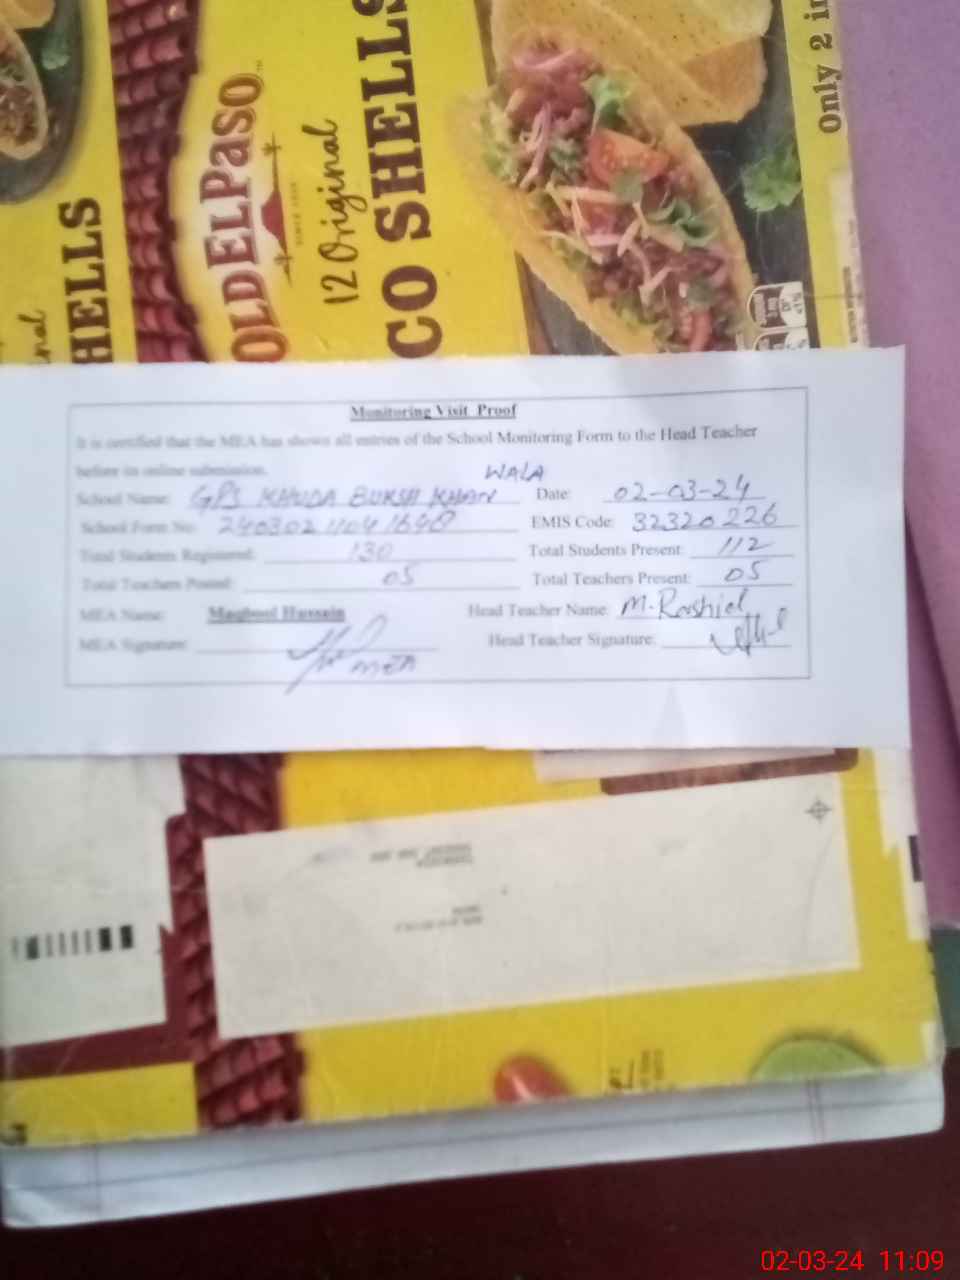 Only 2 in
OLD EL PASO™
SINCE 1938
12 Original
CO SHELLS
HELLS
Monitoring Visit Proof
It is certified that the MEA has shown all entries of the School Monitoring Form to the Head Teacher
before its online submission.
WALA
School Name: GPS KHUDA BUKSH KHAN Date: 02-03-24
School Form No: EMIS Code: 32320226
Total Students Registered: 130 Total Students Present: 112
Total Teachers Posted: 05 Total Teachers Present: 05
MEA Name: Maqbool Hussain Head Teacher Name: M. Rashid
MEA Signature: MEA Head Teacher Signature:
02-03-24 11:09